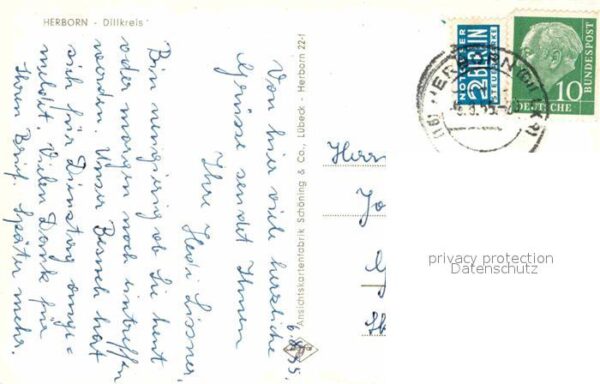 HERBORN - Dillkreis
6.8.55.
Von hier viele herzliche
Grüsse sendet Ihnen
Ihre Hedi Lissner.
Bin neugierig ob Sie heut
oder morgen noch eintreffen
werden. Unser Besuch hat
sich für Dienstag ange-
meldet. Vielen Dank für
Ihren Brief. Später mehr.
Ansichtskartenfabrik Schöning & Co., Lübeck - Herborn 22-1
NOTOPFER
2 BERLIN
STEUERMARKE
10
DEUTSCHE
BUNDESPOST
(16) HERBORN
Herr
privacy protection
Datenschutz